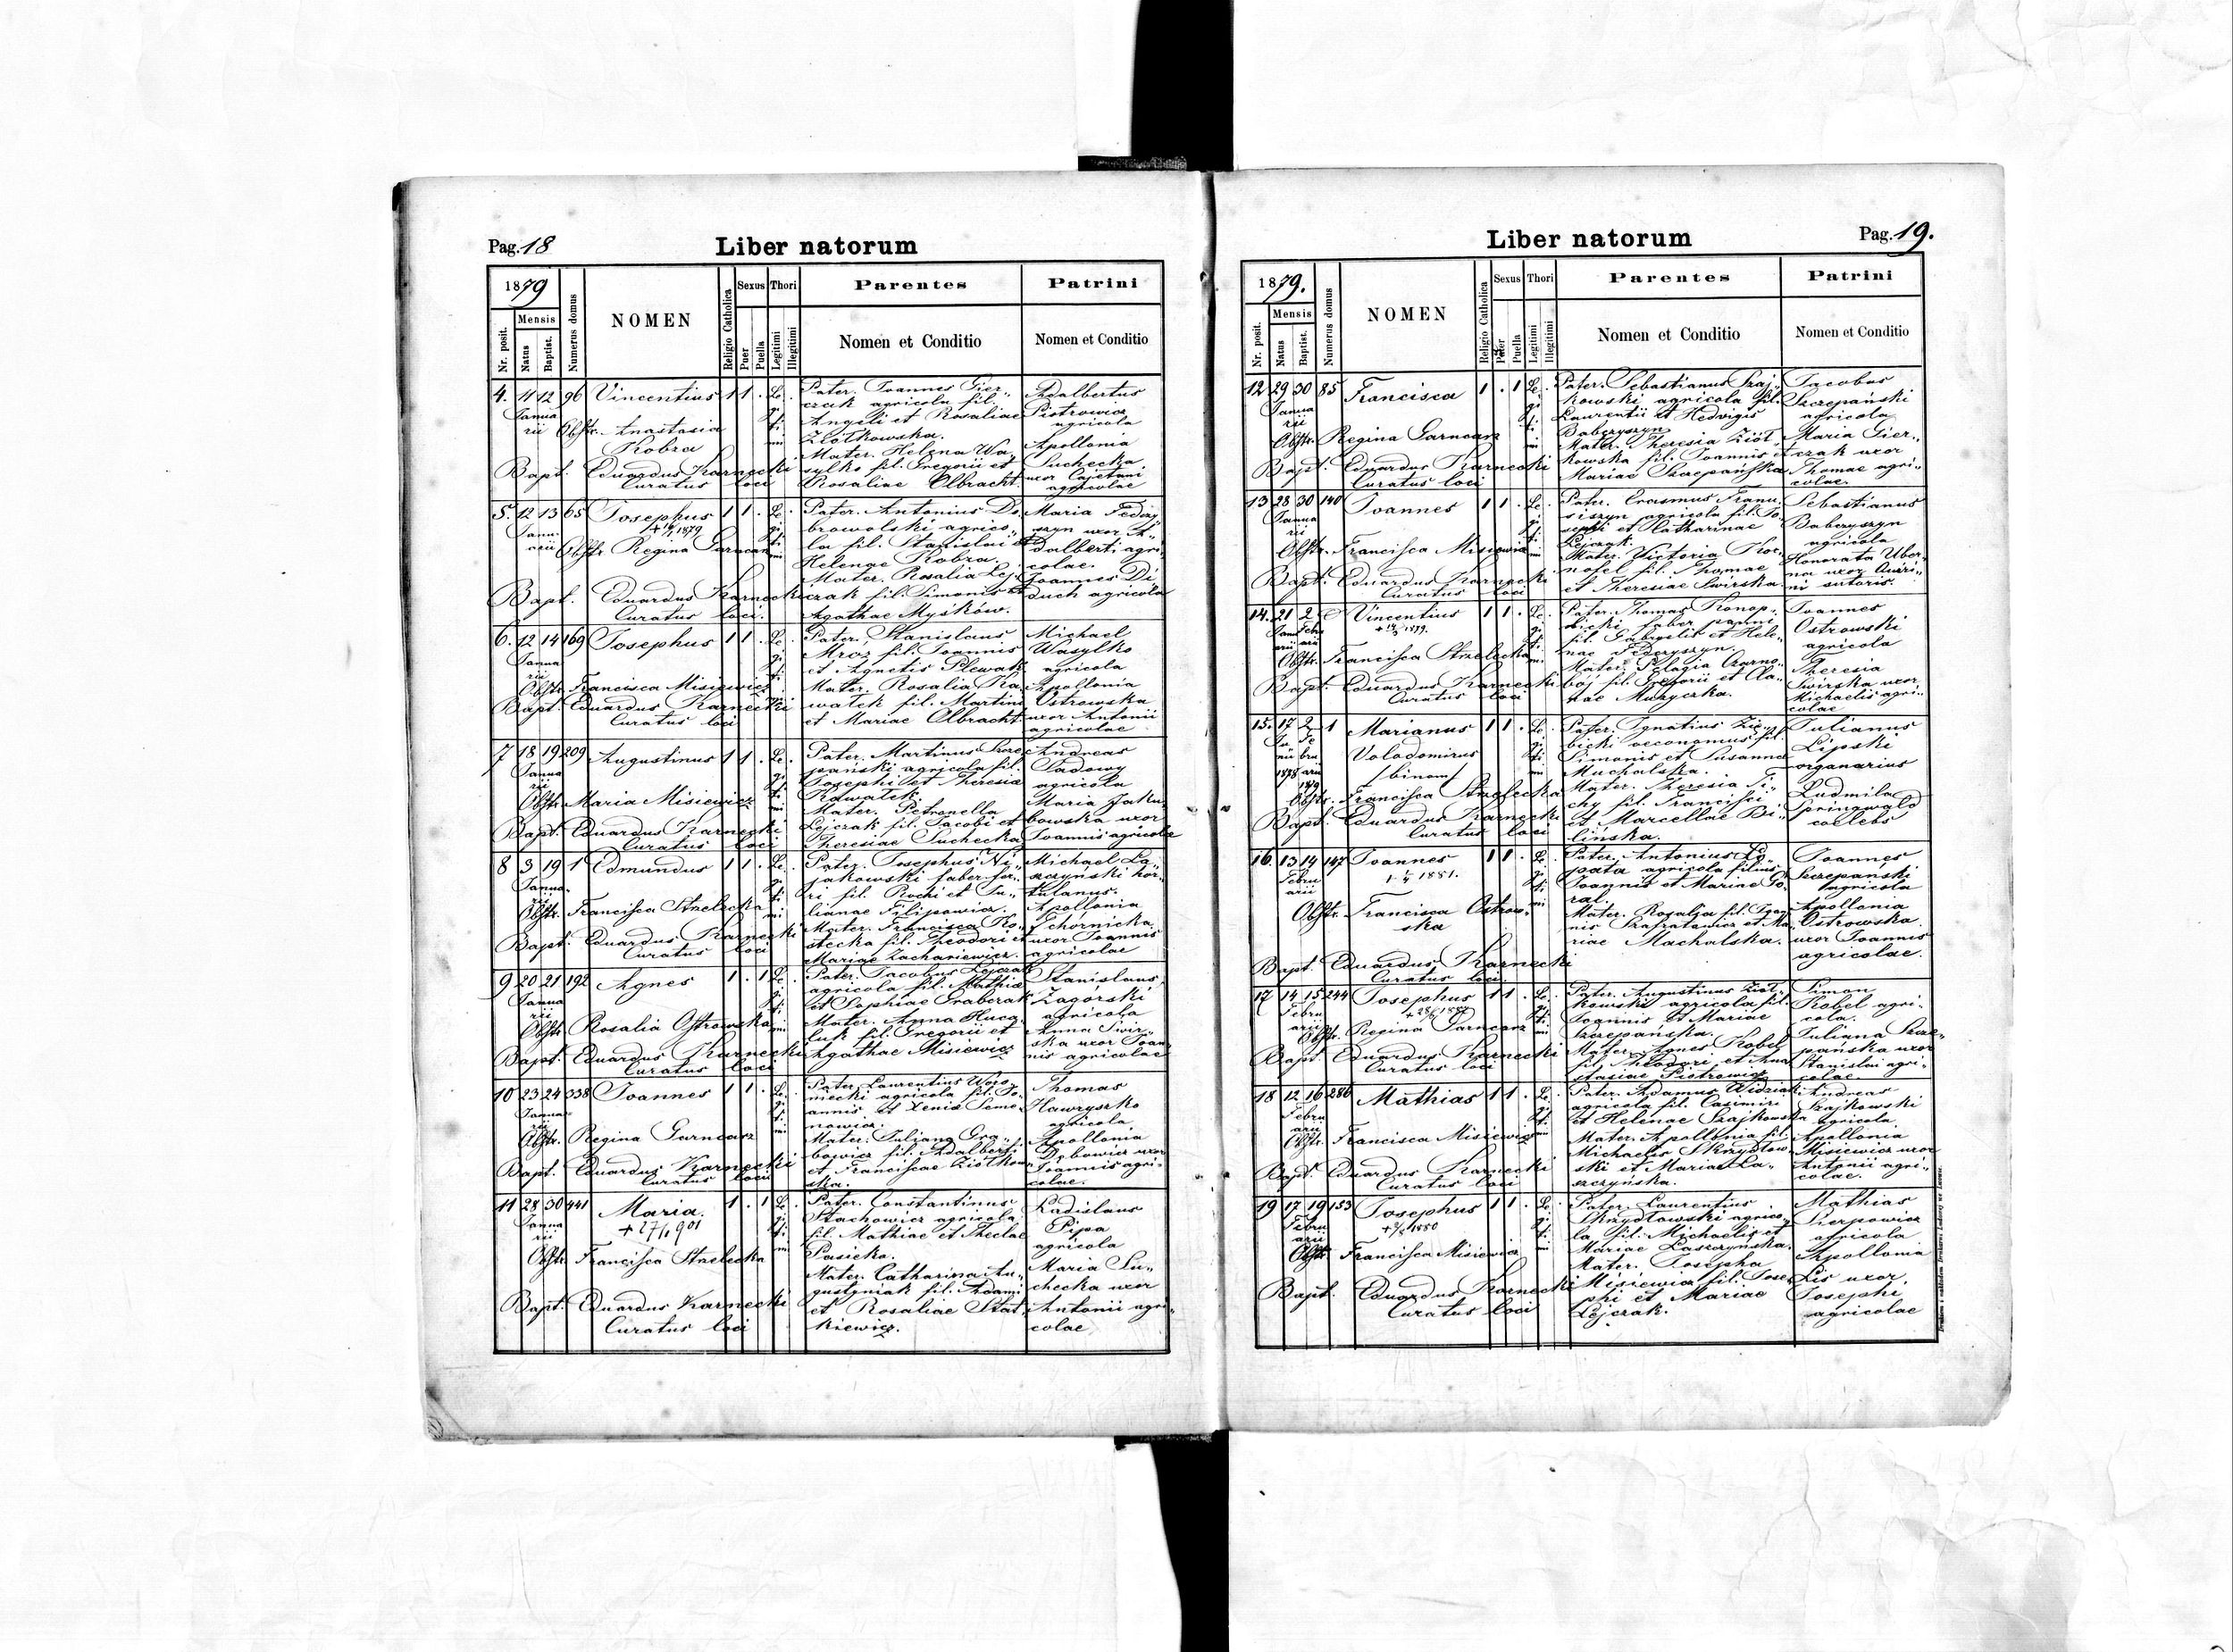 Pag. 18
Liber natorum
1879
Nr. posit.
Mensis
Natus
Baptist.
Numerus domus
NOMEN
Religio Catholica
Sexus
Puer
Puella
Thori
Legitimi
Illegitimi
Parentes
Nomen et Conditio
Patrini
Nomen et Conditio
4. 11 12 96 Vincentius 1 1 . Le.
Janua
rii
Obstr. Anastasia
Kobza
Bapt. Eduardus Karnecki
Curatus loci
Pater. Joannes Gier„
czak agricola fil.
Angeli et Rosaliae
Ziółkowska.
Mater. Helena Wa„
sylko fil. Gregorii et
Rosaliae Olbracht.
Adalbertus
Piotrowicz
agricola
Apollonia
Suchecka
uxor Cajetani
agricolae
5. 12 13 65 Josephus 1 1 . Le.
1879
Janu
arii
Obstr. Regina Garncarz
Bapt. Eduardus Karnecki
Curatus loci.
Pater. Antonius Do„
browolski agrico„
la fil. Stanislai et
Helenae Kobza.
Mater. Rosalia Lej„
czak fil. Simonis et
Agathae Myśków.
Maria Federy
szyn uxor A„
dalberti agri„
colae.
Joannes Di„
duch agricola
6. 12 14 169 Josephus 1 1 . Le.
Janua
rii
Obstr. Francisca Misiewicz
Bapt. Eduardus Karnecki
Curatus loci
Pater. Stanislaus
Mroz fil. Joannis
et Agnetis Plewak
Mater. Rosalia Ka
wałek fil. Martini
et Mariae Olbracht
Michael
Wasylko
agricola
Apollonia
Ostrowska
uxor Antonii
agricolae
7 18 19 209 Augustinus 1 1 . Le.
Janua
rii
Obstr. Maria Misiewicz
Bapt. Eduardus Karnecki
Curatus loci
Pater. Martinus Szcze
pański agricola fil.
Josephi et Theresia
Kawałek.
Mater. Petronella
Lejczak fil. Jacobi et
Theresiae Suchecka
Andreas
Sadowy
agricola
Maria Jaku„
bowska uxor
Joannis agricolae
8 3 19 1 Edmundus 1 1 . Le.
Janua
rii
Obstr. Francisca Strzelecka
Bapt. Eduardus Karnecki
Curatus loci
Pater. Josephus Ni„
jakowski faber fer„
ri fil. Rochi et Ju„
lianae Filipowicz.
Mater. Francisca Ko„
stecka fil. Theodori et
Mariae Zachariewicz.
Michael La„
szczyński hor„
tulanus.
Apollonia
Tchórnicka
uxor Joannis
agricolae
9 20 21 192 Agnes 1 . 1 Le.
Janua
rii
Obstr. Rosalia Ostrowska
Bapt. Eduardus Karnecki
Curatus loci
Pater. Jacobus Lejczak
agricola fil. Mathia
et Sophiae Grabczak
Mater. Anna Huca„
luk fil. Gregorii et
Agathae Misiewicz
Stanislaus
Zagórski
agricola
Anna Swir„
ska uxor Joan
nis agricolae
10 23 24 338 Joannes 1 1 . Le.
Janua
rii
Obstr. Regina Garncarz
Bapt. Eduardus Karnecki
Curatus loci
Pater. Laurentius Woro„
niecki agricola fil. Jo„
annis et Xenia Seme„
nowicz.
Mater. Juliana Gra„
bowicz fil. Adalberti
et Franciscae Ziółkow
ska.
Thomas
Hawryszko
agricola
Apollonia
Dębowicz uxor
Joannis agri„
colae.
11 28 30 441 Maria. 1 . 1 Le.
+ 27/1 901
Janua
rii
Obstr. Francisca Strzelecka
Bapt. Eduardus Karnecki
Curatus loci
Pater. Constantinus
Stachowicz agricola
fil. Mathiae et Theclae
Pasieka.
Mater. Catharina Au„
gustyniak fil. Adami
et Rosaliae Stat„
kiewicz.
Ladislaus
Pipa
agricola
Maria Su„
checka uxor
Antonii agri„
colae
Liber natorum
Pag. 19.
1879.
Nr. posit.
Mensis
Natus
Baptist.
Numerus domus
NOMEN
Religio Catholica
Sexus
Puer
Puella
Thori
Legitimi
Illegitimi
Parentes
Nomen et Conditio
Patrini
Nomen et Conditio
12 29 30 85 Francisca 1 . 1 Le.
Janua
rii
Obstr. Regina Garncarz
Bapt. Eduardus Karnecki
Curatus loci
Pater. Sebastianus Szaj„
kowski agricola fil.
Laurentii et Hedvigis
Babczyszyn
Mater. Theresia Ziół„
kowska fil. Joannis et
Mariae Szczepańska
Jacobus
Szczepański
agricola
Maria Gier„
czak uxor
Thomae agri„
colae.
13 28 30 140 Joannes 1 1 . Le.
Janua
rii
Obstr. Francisca Misiewicz
Bapt. Eduardus Karnecki
Curatus loci
Pater. Erasmus Franu„
siszyn agricola fil. Jo„
sephi et Catharinae
Lejczak.
Mater. Victoria Kor„
nofel fil. Thomae
et Theresiae Swirska
Sebastianus
Babczyszyn
agricola
Honorata Uber„
na uxor Quiri„
ni sutoris.
14. 21 2 Vincentius 1 1 . Le.
1879.
Obstr. Francisca Strzelecka
Bapt. Eduardus Karnecki
Curatus loci
Pater. Thomas Konop„
nicki faber panni
fil. Gabrielis et Hele„
nae Federyszyn.
Mater. Pelagia Czarno„
baj fil. Gregorii et An„
nae Muzyczka.
Joannes
Ostrowski
agricola
Theresia
Swirska uxor
Michaelis agri„
colae
15. 17 2 1 Marianus 1 1 . Le.
Volodomirus
/binom/
1878
1879
Obstr. Francisca Strzelecka
Bapt. Eduardus Karnecki
Curatus loci
Pater. Ignatius Zię„
bicki oeconomus fil.
Simonis et Susanna
Muchalska.
Mater. Theresia Ti„
chy fil. Francisci
et Marcellae Bi„
lińska.
Julianus
Lipski
organarius
Ludmila
Springwald
coelebs
16. 13 14 147 Joannes 1 1 . Le.
1881.
Febru
arii
Obstr. Francisca Ostrow„
ska
Bapt. Eduardus Karnecki
Curatus loci
Pater. Antonius Ło„
pata agricola filius
Joannis et Mariae Gó„
ral.
Mater. Rosalia fil. Joan„
nis Szafratowicz et Ma„
riae Machalska.
Joannes
Szczepański
agricola
Apollonia
Ostrowska
uxor Joannis
agricolae.
17 14 15 244 Josephus 1 1 . Le.
Febru
arii
Obstr. Regina Garncarz
Bapt. Eduardus Karnecki
Curatus loci
Pater. Augustinus Ziół„
kowski agricola fil.
Joannis et Mariae
Szczepańska.
Mater. Agnes Kobel
fil. Theodori et Ana„
stasiae Piotrowicz
Simon
Kobel agri„
cola.
Juliana Szcze„
pańska uxor
Stanislai agri„
colae.
18 12 16 286 Mathias 1 1 . Le.
Febru
arii
Obstr. Francisca Misiewicz
Bapt. Eduardus Karnecki
Curatus loci
Pater. Adamus Widziak
agricola fil. Casimiri
et Helenae Szajkowska
Mater. Apollonia fil.
Michaelis Skrzydłow„
ski et Mariae La„
szczyńska.
Andreas
Szajkowski
agricola
Apollonia
Misiewicz uxor
Antonii agri„
colae.
19 17 19 153 Josephus 1 1 . Le.
1880
Febru
arii
Obstr. Francisca Misiewicz
Bapt. Eduardus Karnecki
Curatus loci
Pater. Laurentius
Skrzydłowski agrico„
la fil. Michaelis et
Mariae Laszczyńska.
Mater. Josepha
Misiewicz fil. Jose„
phi et Mariae
Lejczak.
Mathias
Karpowicz
agricola
Apollonia
Lis uxor
Josephi
agricolae